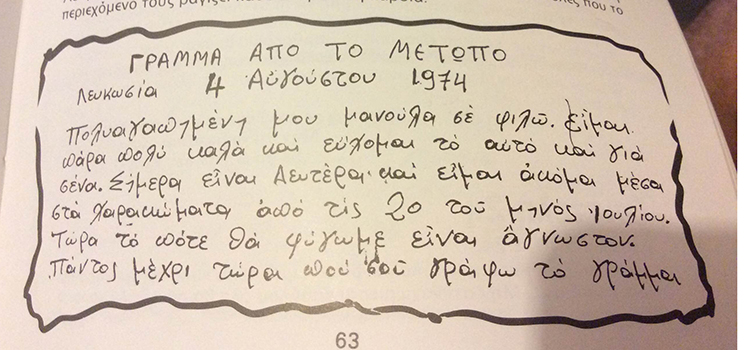 περιεχόμενο τους ραγίζει
που το
ΓΡΑΜΜΑ ΑΠΟ ΤΟ ΜΕΤΩΠΟ
Λευκωσία 4 Αὐγούστου 1974
Πολυαγαπημένη μου μανούλα σὲ φιλῶ. Εἶμαι
πάρα πολύ καλὰ καὶ εὔχομαι τὸ αὐτὸ καὶ γιὰ
σένα. Σήμερα εἶναι Δευτέρα καὶ εἶμαι ἀκόμα μέσα
στὰ χαρακώματα ἀπό τὶς 20 τοῦ μηνὸς Ἰουλίου.
Τώρα τὸ πότε θὰ φύγωμε εἶναι ἄγνωστον.
Πάντος μέχρι τώρα ποὺ σοῦ γράφω τὸ γράμμα
63